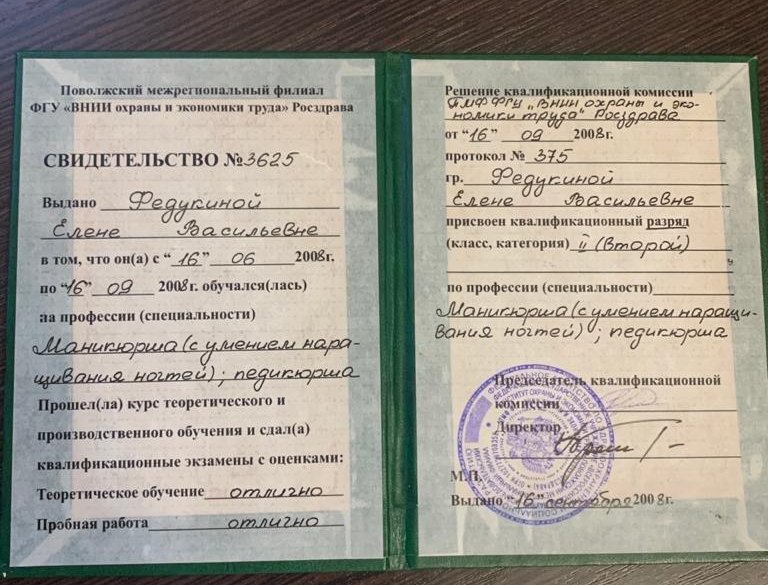 Поволжский межрегиональный филиал
ФГУ «ВНИИ охраны и экономики труда» Росздрава
СВИДЕТЕЛЬСТВО №3625
Выдано Федукиной
Елене Васильевне
в том, что он(а) с “16” 06 2008г.
по “16” 09 2008г. обучался(лась)
на профессии (специальности)
Маникюрша (с умением нара-
щивания ногтей); педикюрша
Прошел(ла) курс теоретического и
производственного обучения и сдал(а)
квалификационные экзамены с оценками:
Теоретическое обучение отлично
Пробная работа отлично
Решение квалификационной комиссии
ПМФ ФГУ „ВНИИ охраны и эко-
номики труда“ Росздрава
от “16” 09 2008г.
протокол № 375
гр. Федукиной
Елене Васильевне
присвоен квалификационный разряд
(класс, категория) II (Второй)
по профессии (специальности)
Маникюрша (с умением наращи-
вания ногтей); педикюрша
Председатель квалификационной
комиссии
Директор
М.П.
Выдано “16” сентября 2008г.